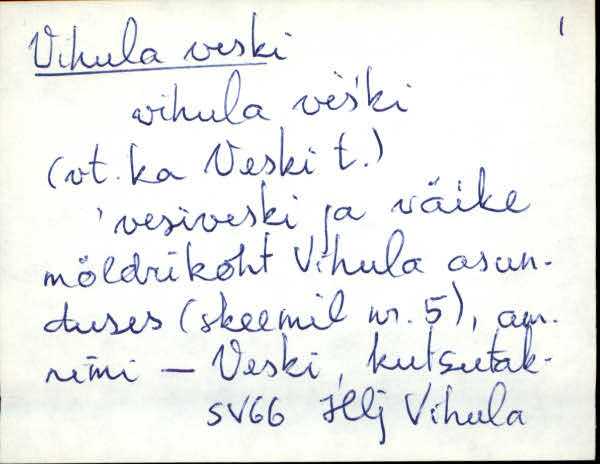 1
Vihula veski
vihula veški
(vt. ka Veski t.)
'vesiveski ja väike
möldrikoht Vihula asun-
duses (skeemil nr. 5), am.
nimi — Veski, kutsutak-
SV66 Hlj Vihula